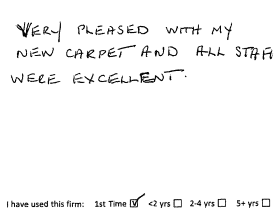 VERY PLEASED WITH MY
NEW CARPET AND ALL STAFF
WERE EXCELLENT.
I have used this firm: 1st Time ☑ <2 yrs ☐ 2-4 yrs ☐ 5+ yrs ☐